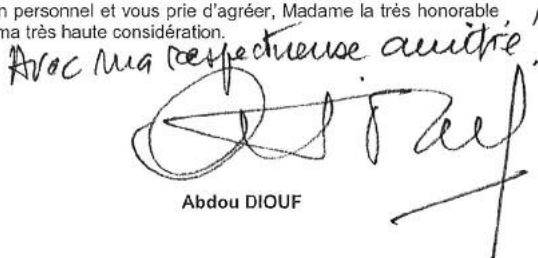 n personnel et vous prie d'agréer, Madame la très honorable
ma très haute considération.
Avec ma respectueuse amitié
Abdou DIOUF